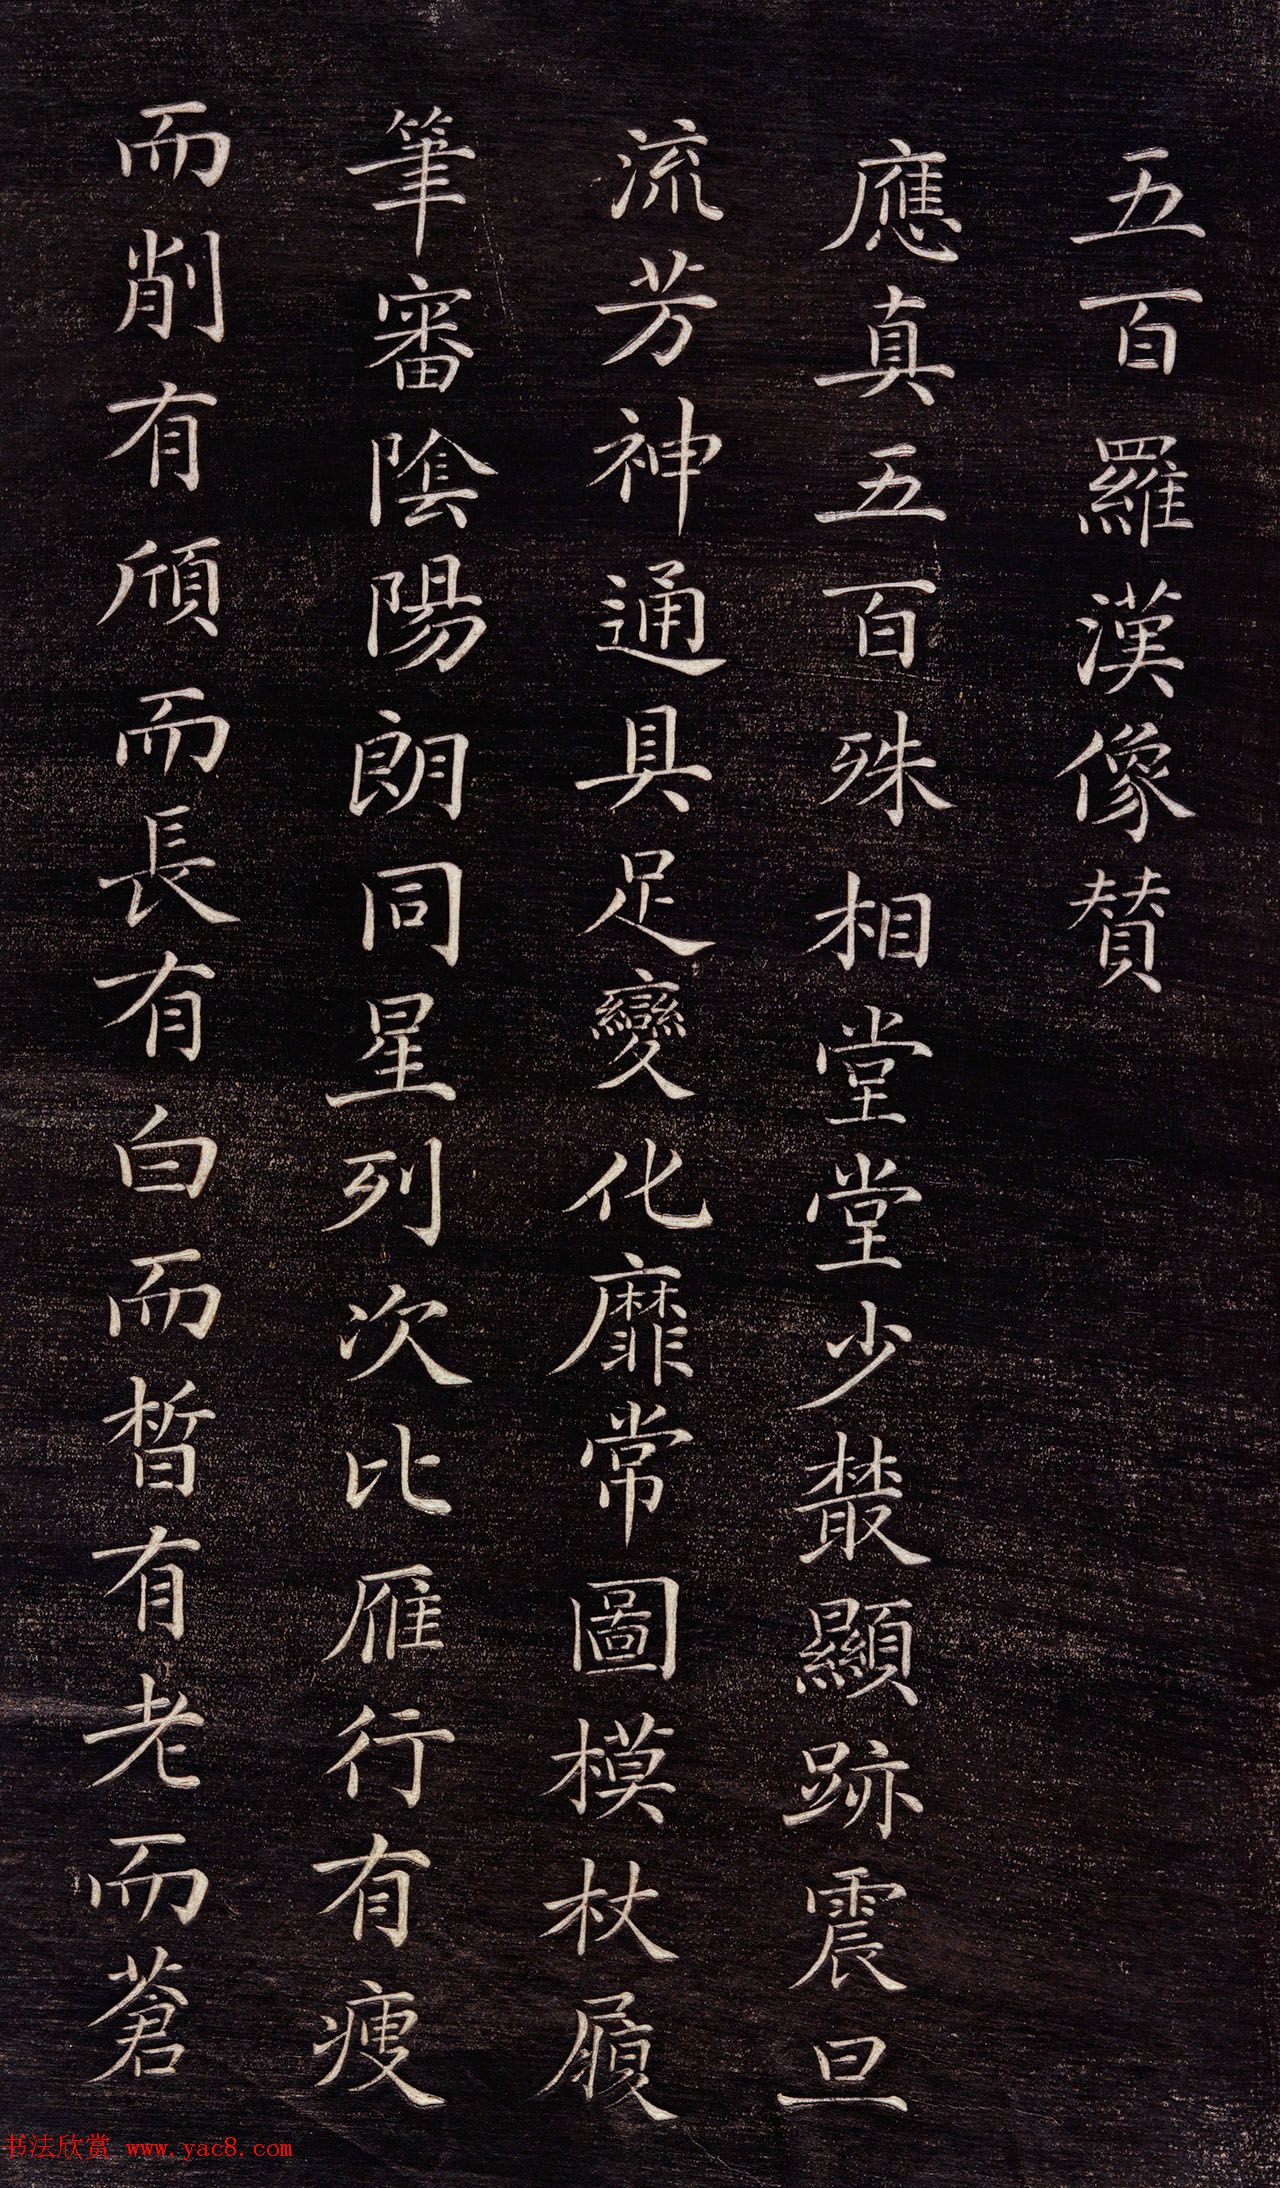 五百羅漢像賛
應真五百殊相堂堂少叢顯跡震旦
流芳神通具足變化靡常圖模杖履
筆審陰陽朗同星列次比雁行有瘦
而削有頎而長有白而皙有老而蒼
书法欣赏 www.yac8.com